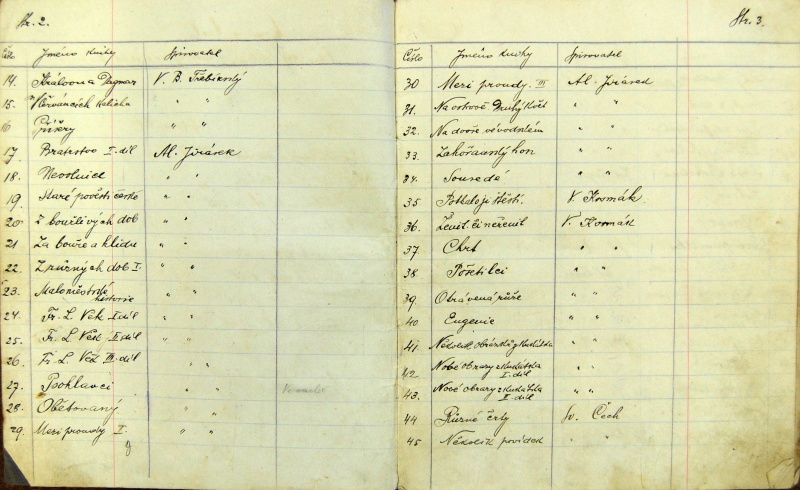 Str. 2.
Číslo Jméno knihy Spisovatel
14. Královna Dagmar V. B. Třebízský
15. V červáncích kalicha " "
16 Příšery " "
17 Bratrstvo I. díl Al. Jirásek
18. Nevolnice " "
19. Staré pověsti české " "
20. Z bouřlivých dob " "
21 Za bouře a klidu " "
22. Z různých dob I. " "
23. Maloměstské
historie " "
24. Fr. L. Věk I. díl " "
25. Fr. L. Věk II. díl " "
26. Fr. L. Věk III. díl " "
27. Psohlavci " "
28. Obětovaný " "
29. Mezi proudy I. " "
Str. 3.
Číslo Jméno knihy Spisovatel
30 Mezi proudy. III Al. Jirásek
31. Na ostrově. Druhý květ " "
32. Na dvoře vévodském " "
33. Zahořanský hon " "
34. Sousedé " "
35 Potkalo ji štěstí. V. Kosmák.
36. Ženit či neženit V. Kosmák
37. Chrt " "
38 Pošetilci " "
39. Otrávená růže " "
40 Eugenie " "
41. Několik obrázků z Kukátka " "
42 Nové obrazy z Kukátka
I. díl " "
43. Nové obrazy z Kukátka
II. díl " "
44 Různé črty Sv. Čech
45 Několik povídek " "